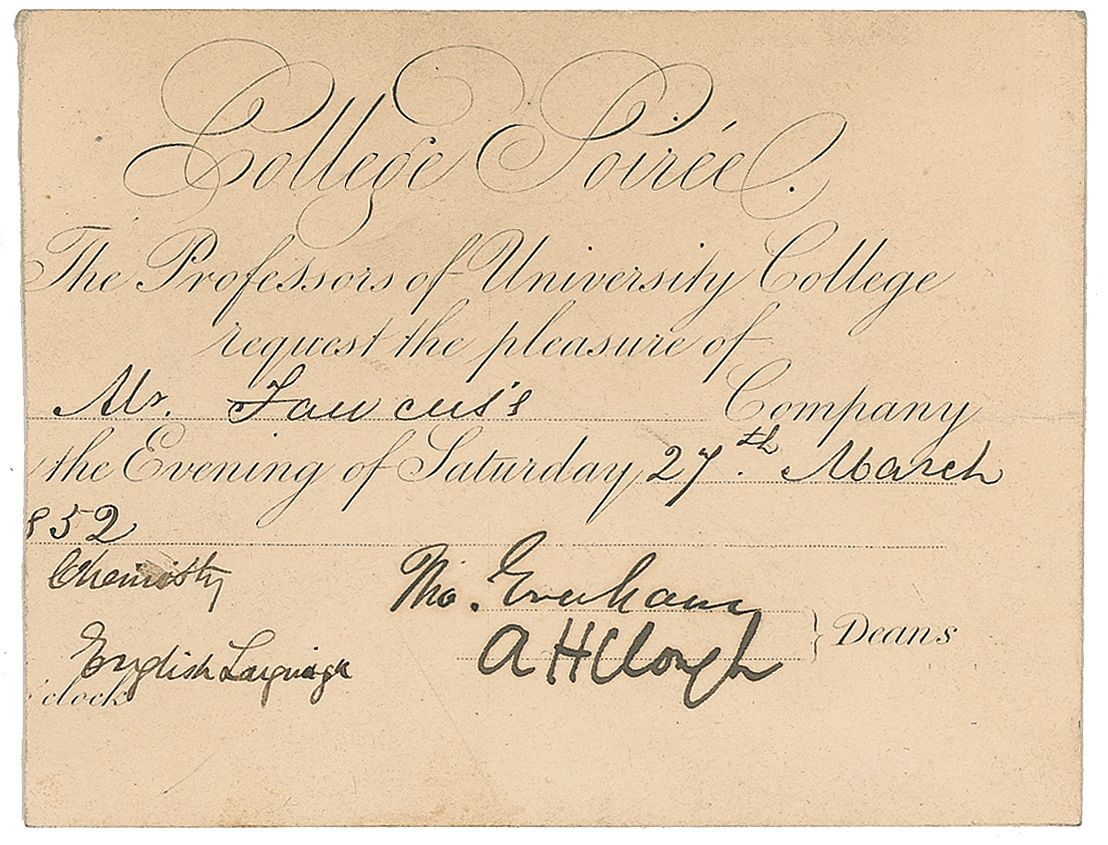 College Soirée.
The Professors of University College
request the pleasure of
Mr. Fawcus's Company
the Evening of Saturday 27.th March
852
Chemistry
Tho.
A H Clough } Deans
English Language
o'clock